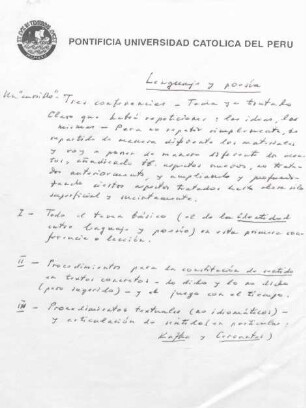 PONTIFICIA UNIVERSIDAD CATOLICA DEL PERU
Lenguaje y poesía
Un "cursillo". Tres conferencias – Tema ya tratado
Claro que habrá repeticiones: las ideas, las
mismas – Para no repetir simplemente, he
repartido de manera diferente los materiales
y voy a poner de manera diferente los acen-
tos, añadiendo tb. aspectos nuevos, no trata-
dos anteriormente, y ampliando y profundi-
zando ciertos aspectos tratados hasta ahora sólo
superficial y sucintamente.
I – Todo el tema básico (el de la identidad
entre lenguaje y poesía) en esta primera con-
ferencia o lección.
II – Procedimientos para la constitución de sentido
en textos concretos – de dicho y lo no dicho
(pero sugerido) – y el juego con el tiempo.
III – Procedimientos textuales (no idiomáticos) –
y articulación de sentido (en particular:
Kafka y Cervantes)